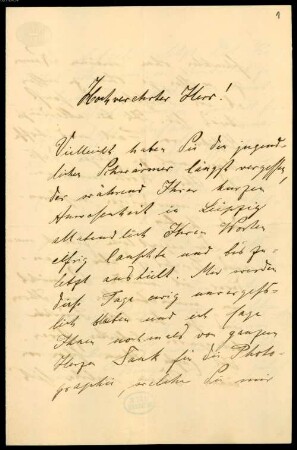 1
Hochverehrter Herr!
Vielleicht haben Sie den jugend-
lichen Schwärmer längst vergessen,
der während Ihrer kurzen
Anwesenheit in Leipzig
allabendlich Ihren Worten
eifrig lauschte und bis zu-
letzt aushielt. Mir werden
diese Tage ewig unvergess-
lich bleiben und ich sage
Ihnen nochmals von ganzem
Herzen Dank für die Photo-
graphie, welche Sie mir